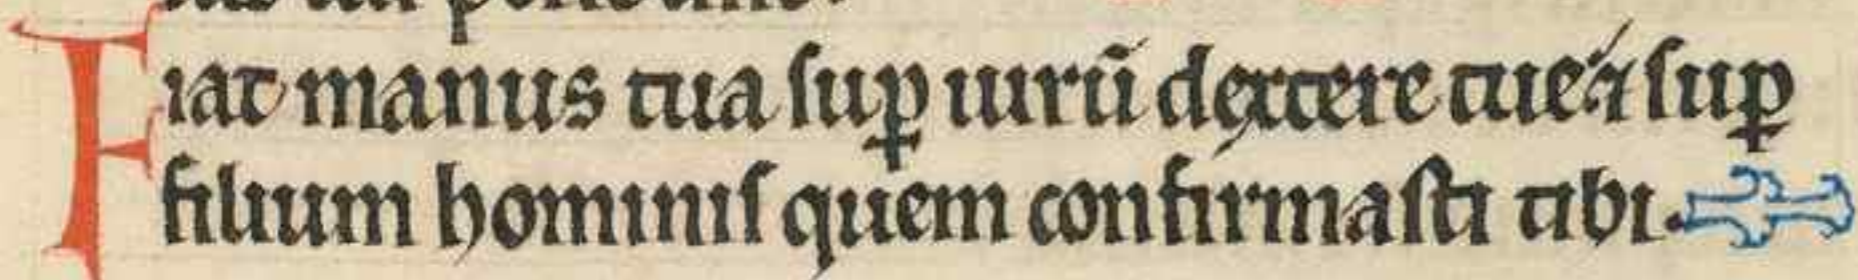 Fiat manus tua sup̲ uirū dextere tue ⁊ sup̲
filium hominis quem confirmasti tibi.